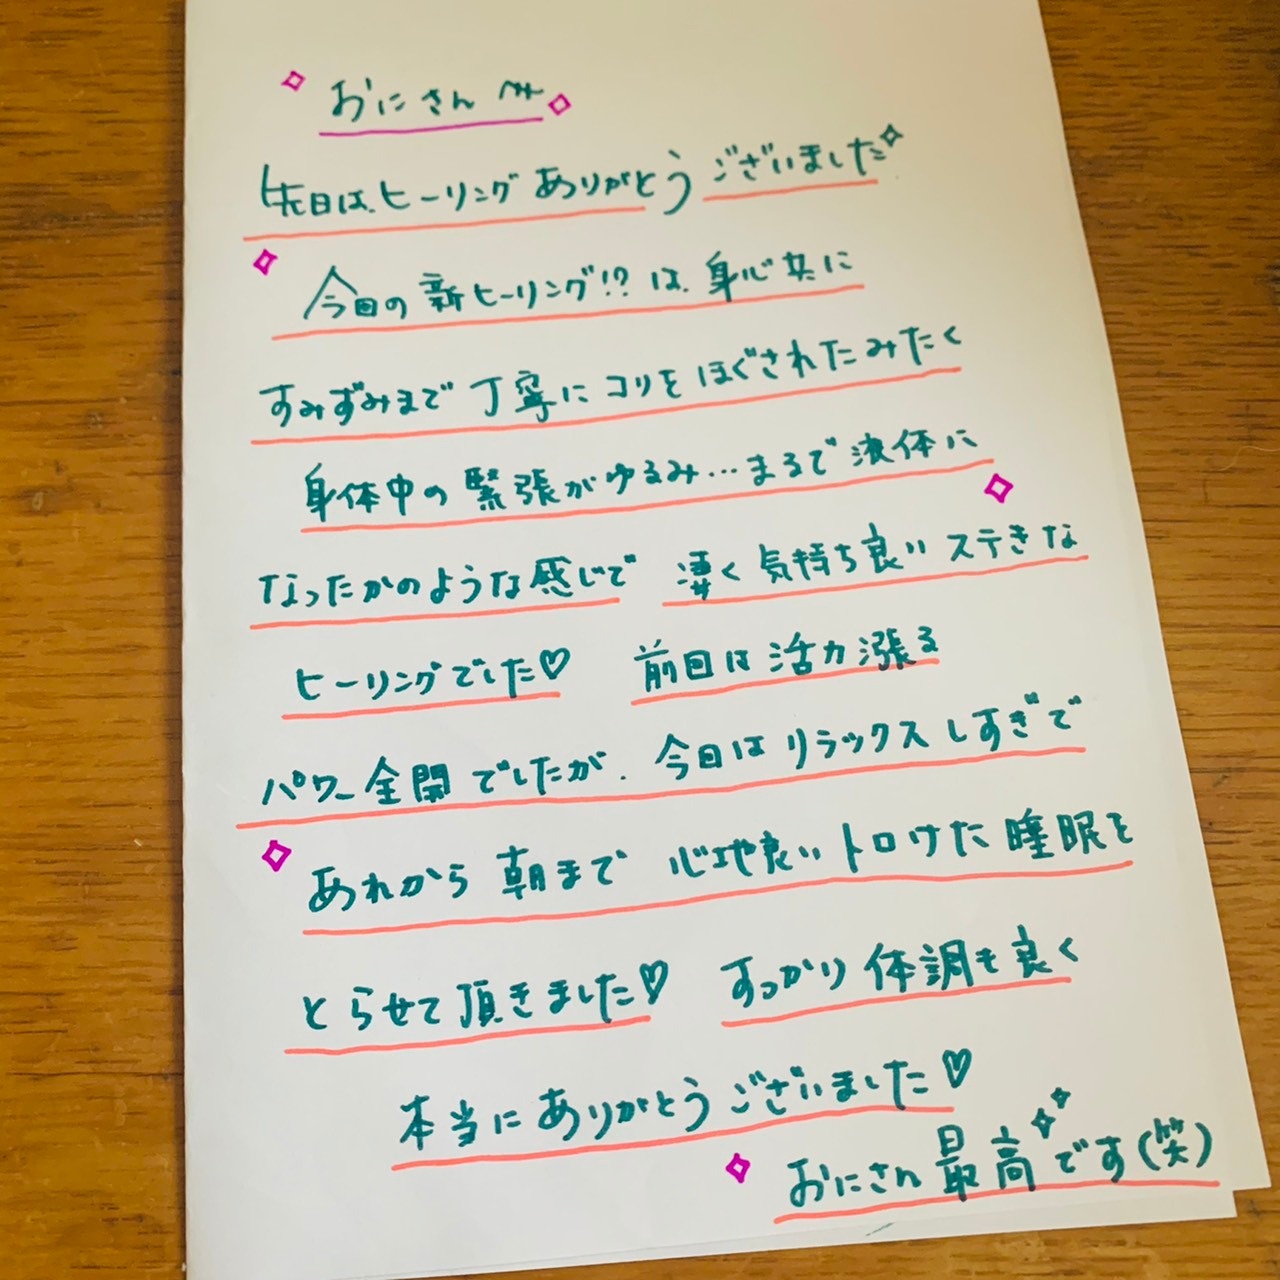 おにさん へ
先日は、ヒーリング ありがとう ございました
今回の 新ヒーリング!?は、身心共に
すみずみまで 丁寧に コリを ほぐされたみたく
身体中の 緊張が ゆるみ…まるで 液体に
なったかのような感じで 凄く 気持ち良い ステきな
ヒーリングでした♡ 前回は 活力 漲る
パワー全開 でしたが、今日は リラックス しすぎで
あれから 朝まで 心地良い トロけた 睡眠を
とらせて頂きました♡ すっかり 体調も 良く
本当に ありがとう ございました♡
おにさん 最高です(笑)